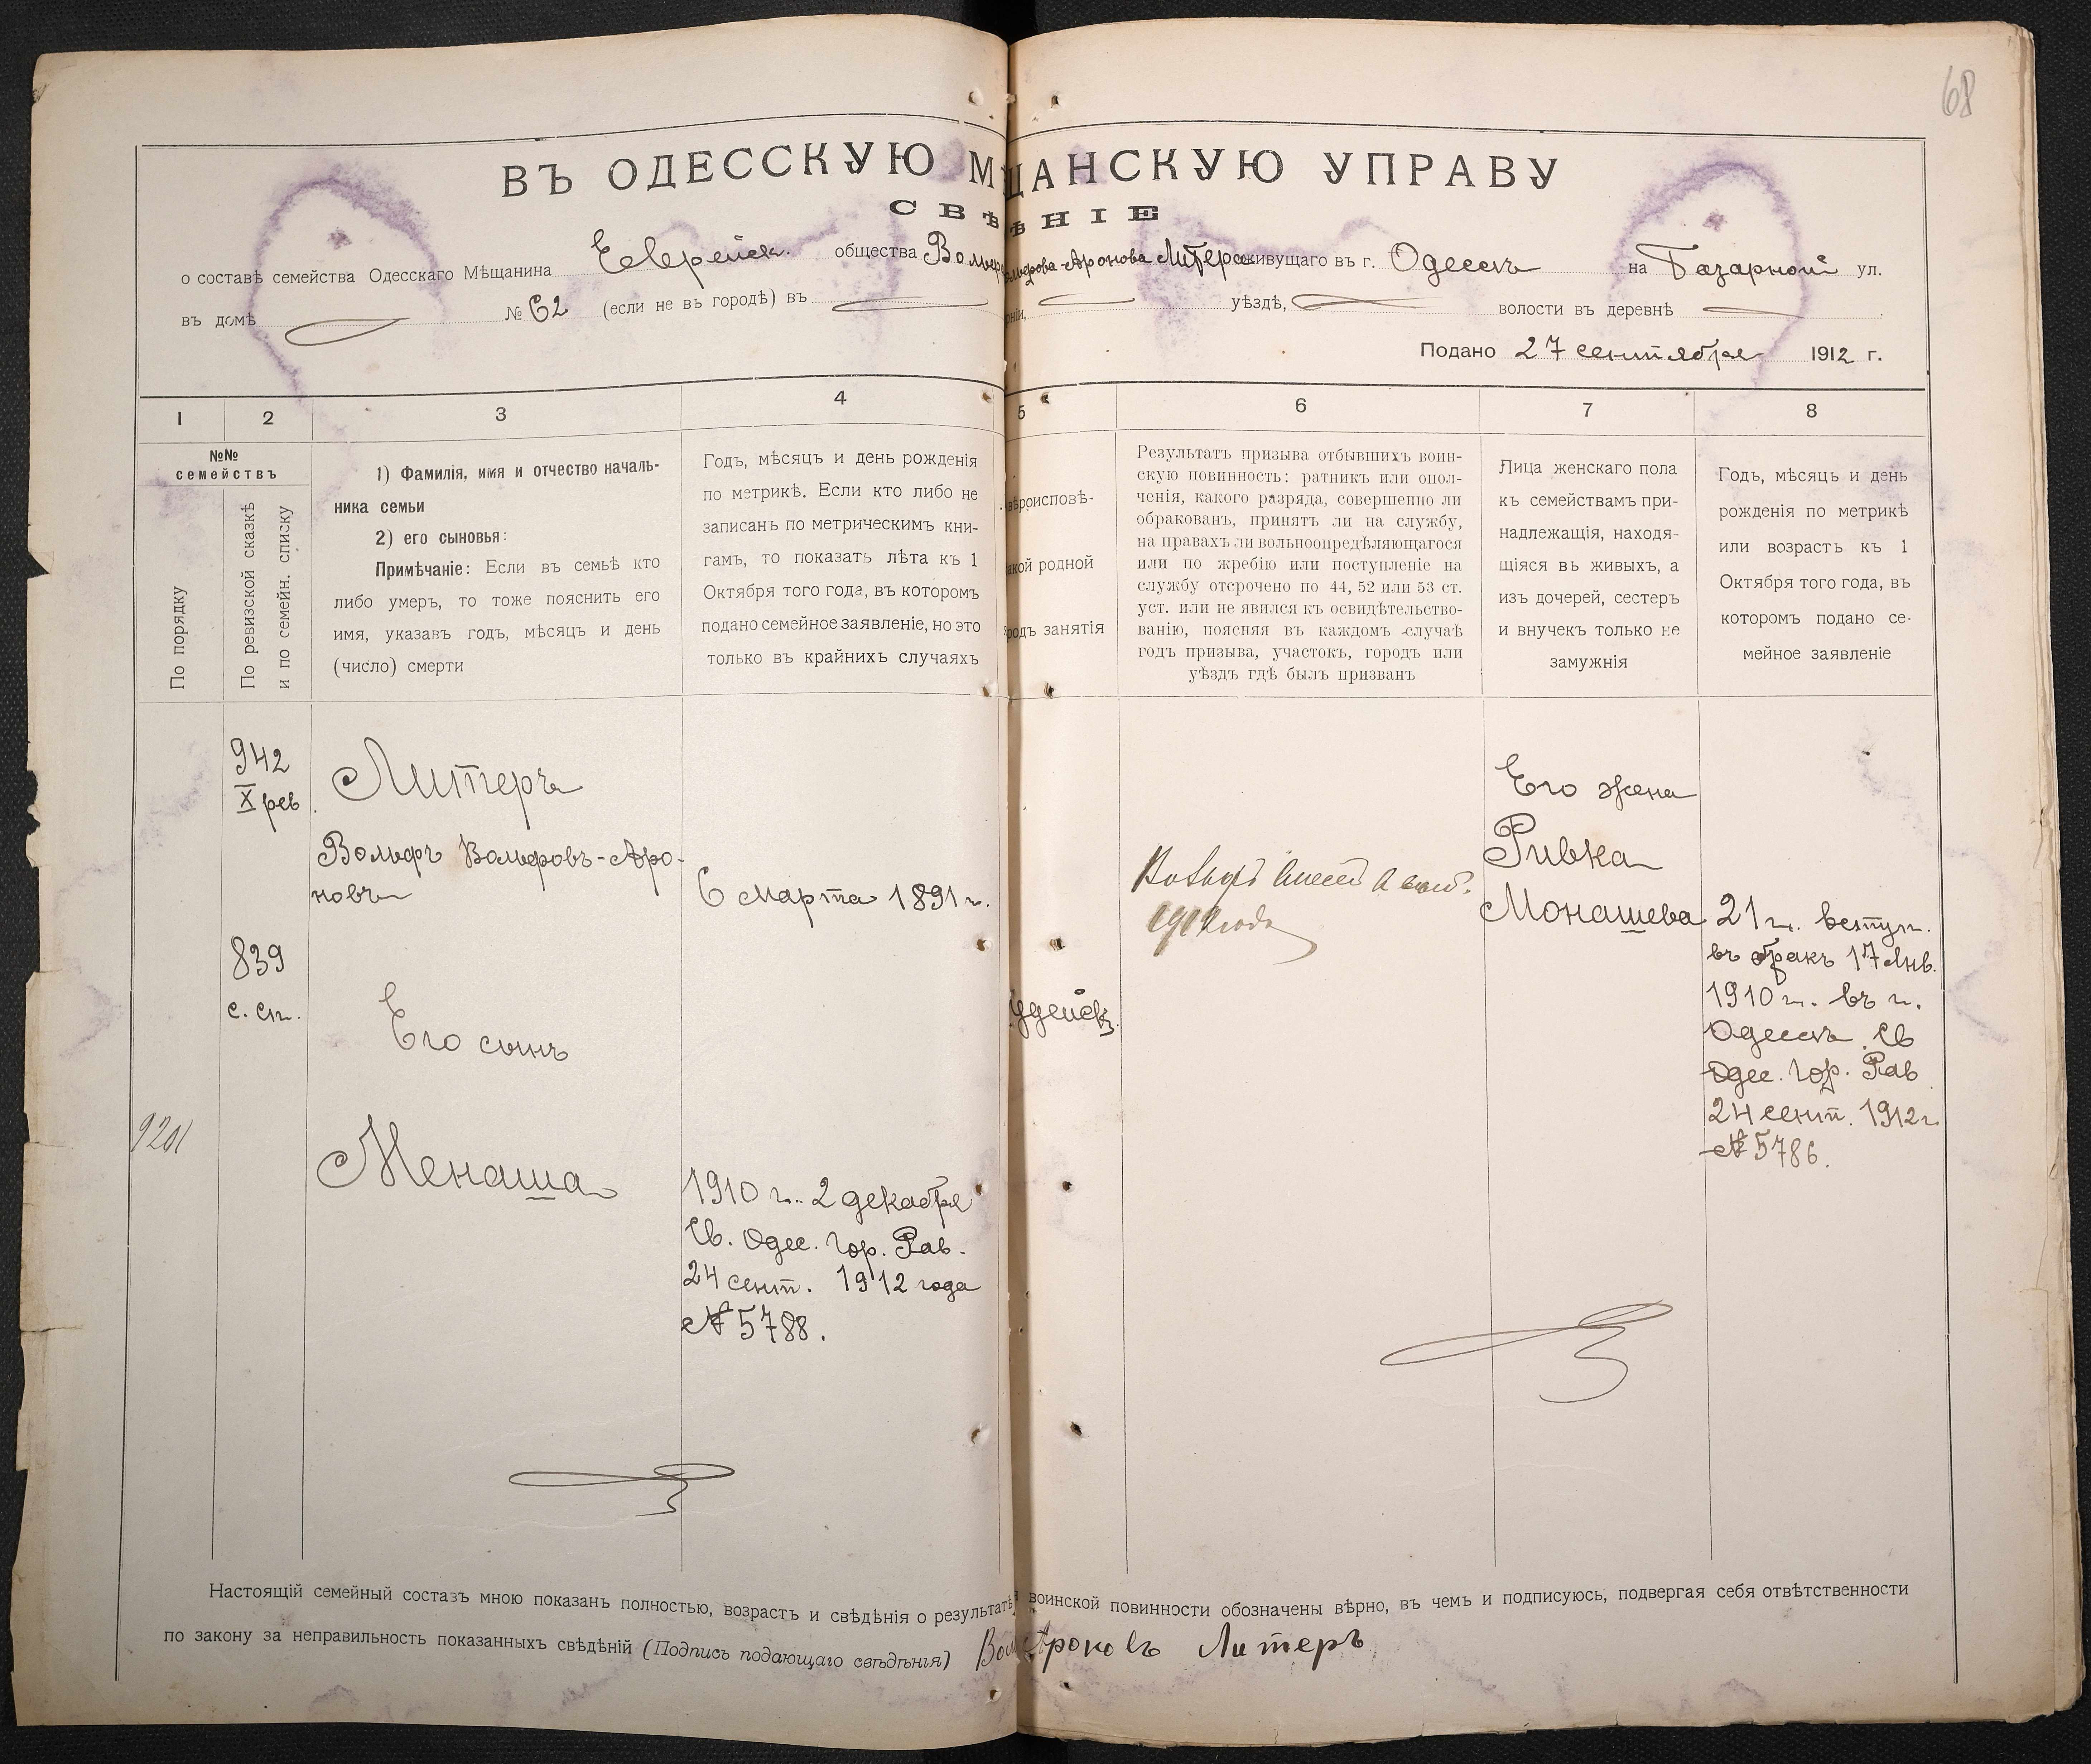 68
ВЪ ОДЕССКУЮ М ЩАНСКУЮ УПРАВУ
СВѢ ѢНІЕ
о составѣ семейства Одесскаго Мѣщанина Еврейск. общества Вольф Вольфова-Аронова Литера живущаго въ г. Одессѣ на Базарной ул.
въ домѣ № 62 (если не въ городѣ) въ ніи, уѣздѣ, волости въ деревнѣ
Подано 27 сентября 1912 г.
1 2 3 4 5 6 7 8
№№
семействъ
По порядку
По ревизской сказкѣ
и по семейн. списку
1) Фамилія, имя и отчество началь-
ника семьи
2) его сыновья:
Примѣчаніе: Если въ семьѣ кто
либо умеръ, то тоже пояснить его
имя, указавъ годъ, мѣсяцъ и день
(число) смерти
Годъ, мѣсяцъ и день рожденія
по метрикѣ. Если кто либо не
записанъ по метрическимъ кни-
гамъ, то показать лѣта къ 1
Октября того года, въ которомъ
подано семейное заявленіе, но это
только въ крайнихъ случаяхъ
вѣроисповѣ-
акой родной
родъ занятія
Результатъ призыва отбывшихъ воин-
скую повинность: ратникъ или опол-
ченія, какого разряда, совершенно ли
обракованъ, принятъ ли на службу,
на правахъ ли вольноопредѣляющагося
или по жребію или поступленіе на
службу отсрочено по 44, 52 или 53 ст.
уст. или не явился къ освидѣтельство-
ванію, поясняя въ каждомъ случаѣ
годъ призыва, участокъ, городъ или
уѣздъ гдѣ былъ призванъ
Лица женскаго пола
къ семействамъ при-
надлежащія, находя-
щіяся въ живыхъ, а
изъ дочерей, сестеръ
и внучекъ только не
замужнія
Годъ, мѣсяцъ и день
рожденія по метрикѣ
или возрастъ къ 1
Октября того года, въ
которомъ подано се-
мейное заявленіе
942
X рев
839
с. сп.
9201
Литеръ
Вольфъ Вольфовъ-Аро-
новъ
Его сынъ
Менаша
6 марта 1891 г.
1910 г. 2 декабря
Св. Одес. Гор. Рав.
24 сент. 1912 года
№ 5788.
Іудейск.
1912 года
Его жена
Ривка
Монашева
21 г. вступ.
въ бракъ 17 Янв.
1910 г. въ г.
Одессѣ. Св
Одес. Гор. Рав
24 сент. 1912 г
№ 5786.
Настоящій семейный составъ мною показанъ полностью, возрастъ и свѣдѣнія о результатѣ воинской повинности обозначены вѣрно, въ чемъ и подписуюсь, подвергая себя отвѣтственности
по закону за неправильность показанныхъ свѣдѣній (Подпись подающаго свѣдѣнія) Вол Ароновъ Литеръ